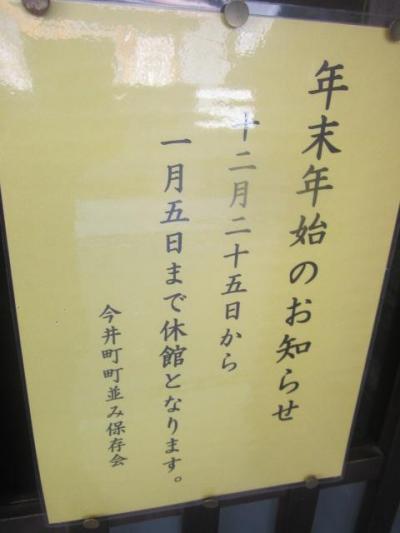 年末年始のお知らせ
十二月二十五日から
一月五日まで休館となります。
今井町町並み保存会